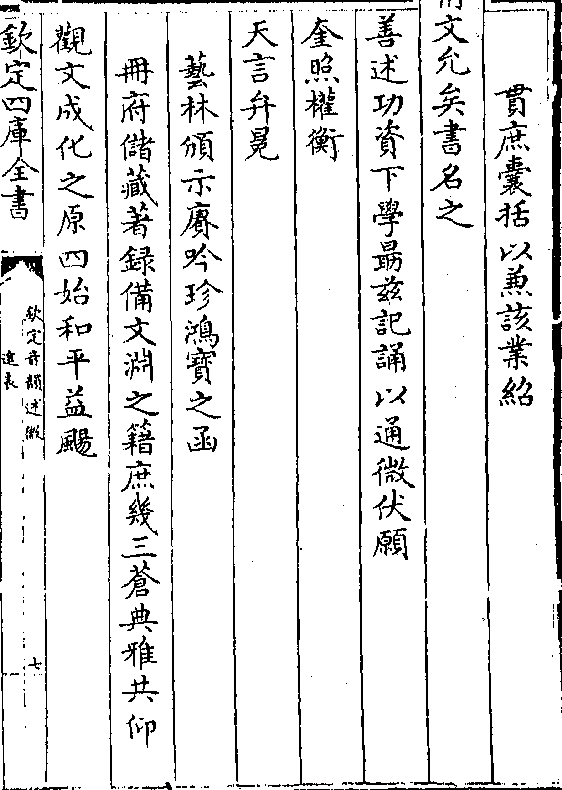 貫庶囊括以兼該業紹
前文允矣書名之
善述功資下學最茲記誦以通微伏願
奎照權衡
天言弁冕
藝林頒示賡吟珍鴻寶之函
冊府儲藏著錄備文淵之籍庶幾三蒼典雅共仰
觀文成化之原四始和平益颺
欽定四庫全書
欽定音韻述微
進表
七